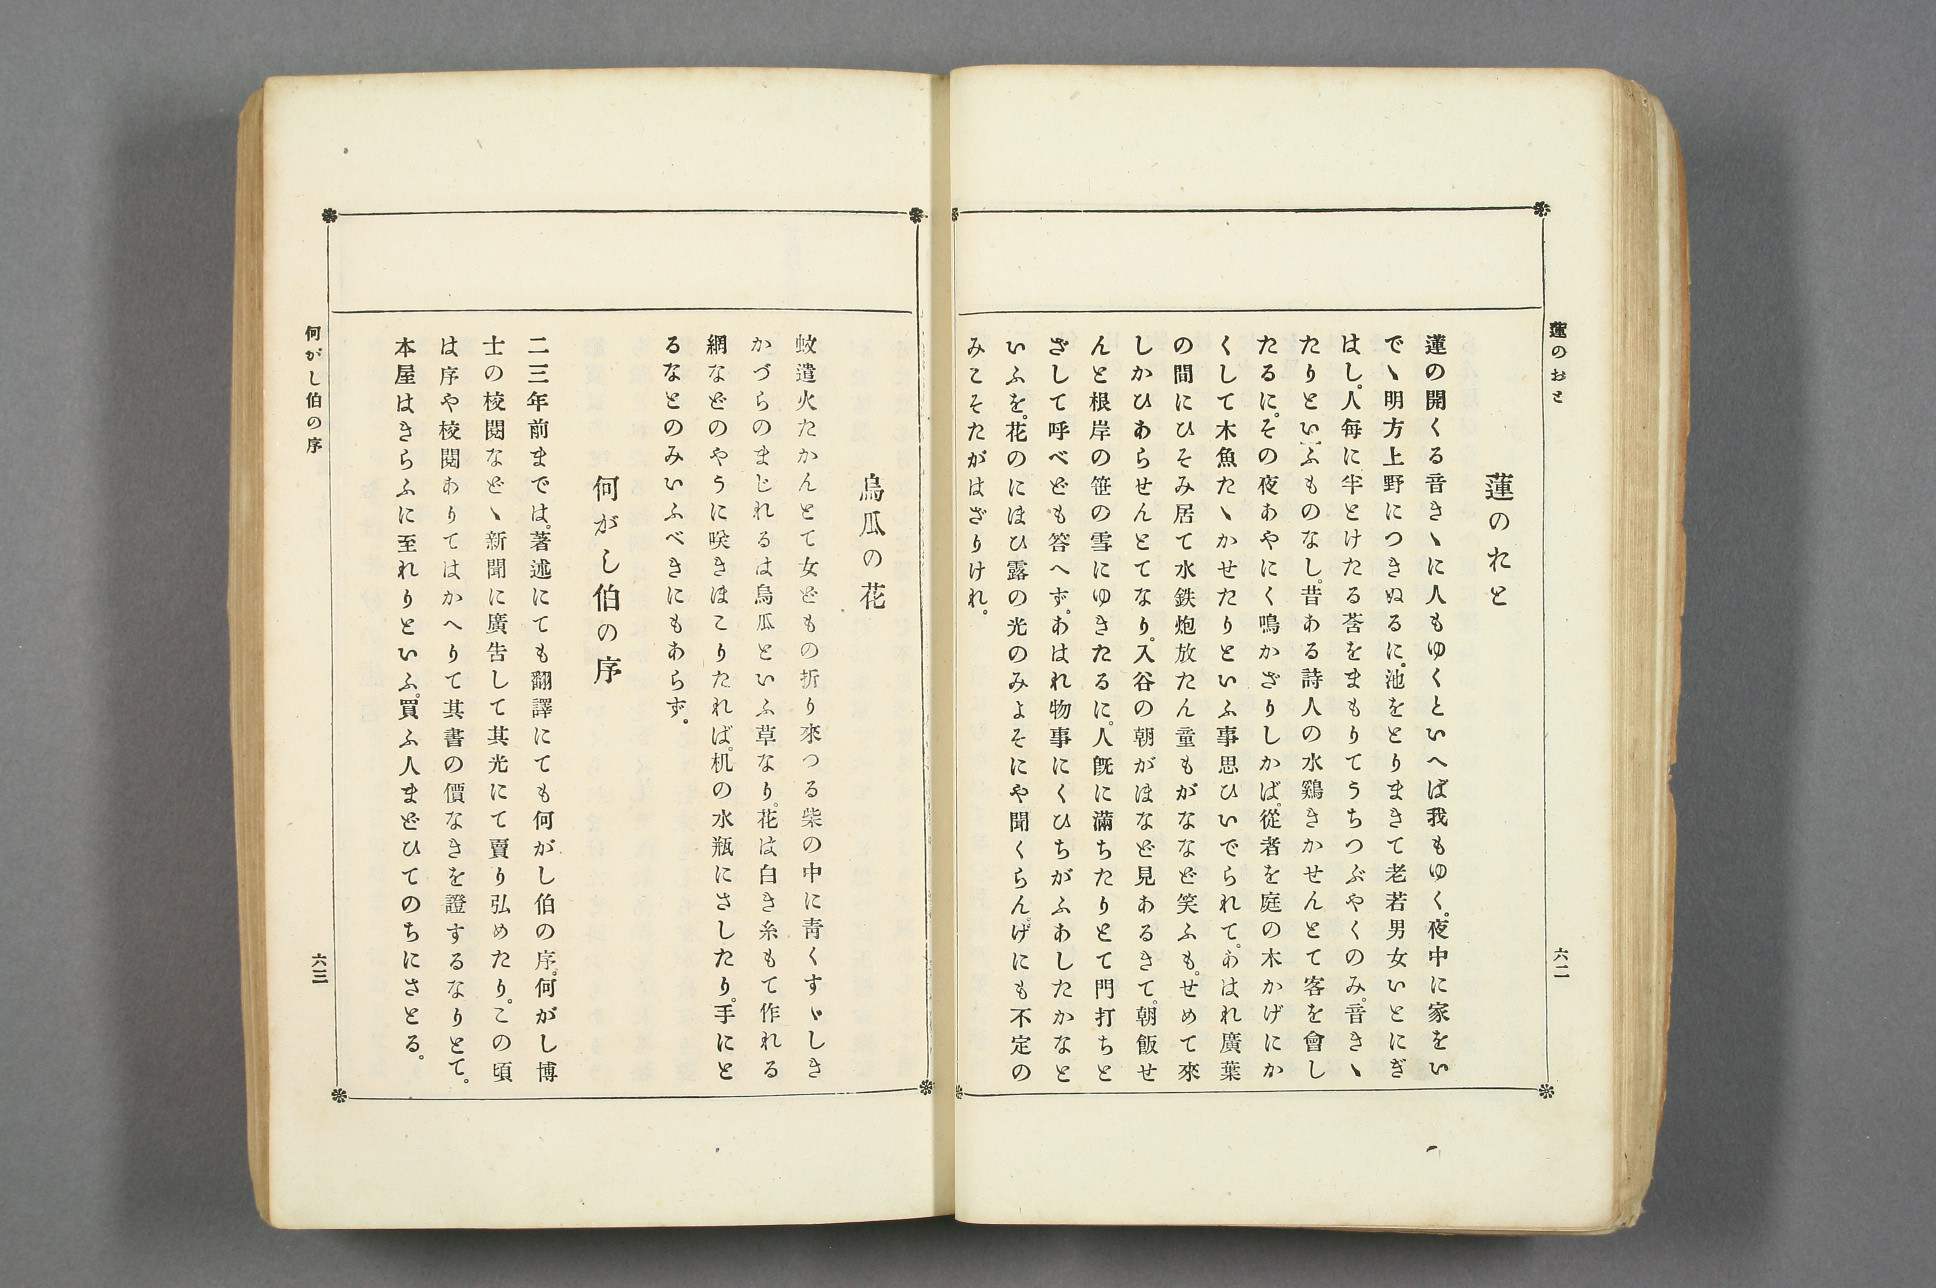 蓮のおと
六二
蓮のれと
蓮の開くる音きゝに人もゆくといへば我もゆく。夜中に家をい
でゝ明方上野につきぬるに。池をとりまきて老若男女いとにぎ
はし。人毎に半とけたる莟をまもりてうちつぶやくのみ。音きゝ
たりといふものなし。昔ある詩人の水鷄きかせんとて客を會し
たるに。その夜あやにく鳴かざりしかば。從者を庭の木かげにか
くして木魚たゝかせたりといふ事思ひいでられて。あはれ廣葉
の間にひそみ居て水鉄炮放たん童もがなゝど笑ふも。せめて來
しかひあらせんとてなり。入谷の朝がほなど見あるきて。朝飯せ
んと根岸の笹の雪にゆきたるに。人旣に滿ちたりとて門打ちと
ざして呼べども答へず。あはれ物事にくひちがふあしたかなと
いふを。花のにほひ露の光のみよそにや聞くらん。げにも不定の
みこそたがはざりけれ。
烏瓜の花
蚊遣火たかんとて女どもの折り來つる柴の中に靑くすゞしき
かづらのまじれるは烏瓜といふ草なり。花は白き糸もて作れる
網などのやうに咲きほこりたれば。机の水瓶にさしたり。手にと
るなとのみいふべきにもあらず。
何がし伯の序
二三年前までは。著述にても翻譯にても何がし伯の序。何がし博
士の校閱などゝ新聞に廣告して其光にて賣り弘めたり。この頃
は序や校閱ありてはかへりて其書の價なきを證するなりとて。
本屋はきらふに至れりといふ。買ふ人まどひてのちにさとる。
何がし伯の序
六三